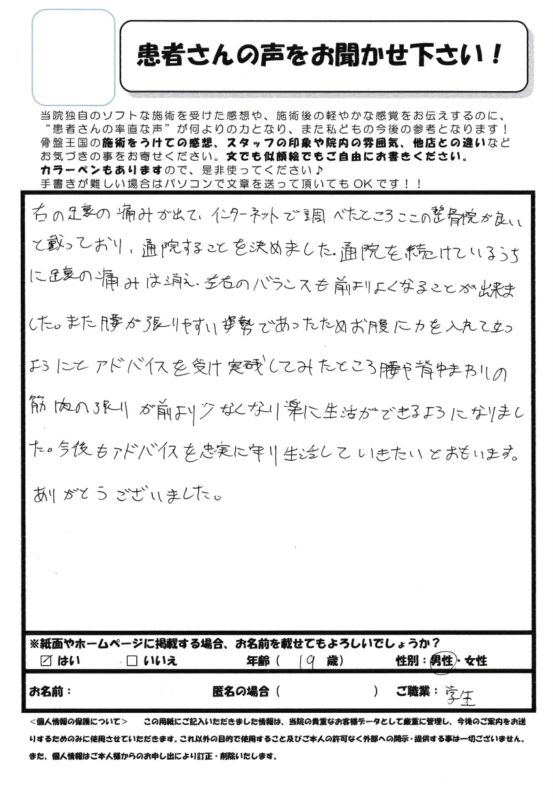 患者さんの声をお聞かせ下さい！
当院独自のソフトな施術を受けた感想や、施術後の軽やかな感覚をお伝えするのに、
“患者さんの率直な声”が何よりの力となり、また私どもの今後の参考となります！
骨盤王国の施術をうけての感想、スタッフの印象や院内の雰囲気、他店との違いなど
お気づきの事をお寄せください。文でも似顔絵でもご自由にお書きください。
カラーペンもありますので、是非使ってください♪
手書きが難しい場合はパソコンで文章を送って頂いてもOKです！！
右の足裏の痛みが出て、インターネットで調べたところここの整骨院が良い
と載っており、通院することを決めました。通院を続けているうち
に足裏の痛みは消え、左右のバランスも前よりよくなることが出来ま
した。また腰が張りやすい姿勢であったためお腹に力を入れて立つ
ようにとアドバイスを受け実践してみたところ腰や背中まわりの
筋肉の張りが前より少なくなり楽に生活ができるようになりまし
た。今後もアドバイスを忠実に守り生活していきたいとおもいます。
ありがとうございました。
※紙面やホームページに掲載する場合、お名前を載せてもよろしいでしょうか？
☑ はい □ いいえ 年齢（ 19 歳） 性別：男性・女性
お名前： 匿名の場合（ ） ご職業：学生
＜個人情報の保護について＞ この用紙にご記入いただきました情報は、当院の貴重なお客様データとして厳重に管理し、今後のご案内をお送
りするためのみに使用させていただきます。これ以外の目的で使用すること及びご本人の許可なく外部への開示・提供する事は一切ございません。
また、個人情報はご本人様からのお申し出により訂正・削除いたします。